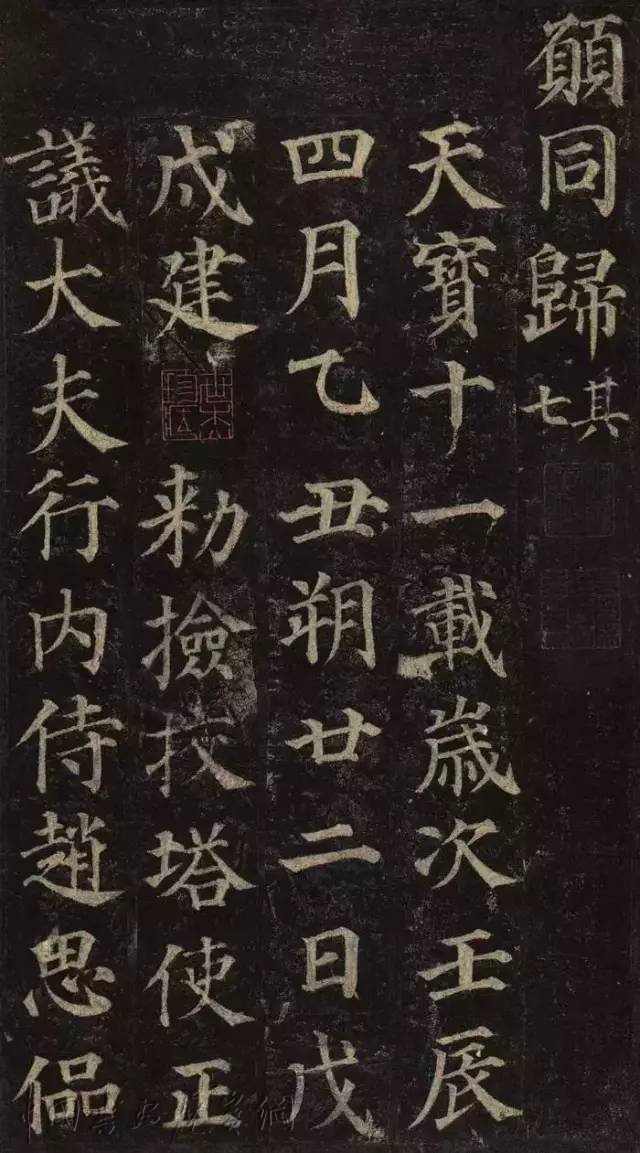 願同歸其七
天寶十一載歲次壬辰
四月乙丑朔廿二日戊
戌建勑撿挍塔使正
議大夫行内侍趙思侃